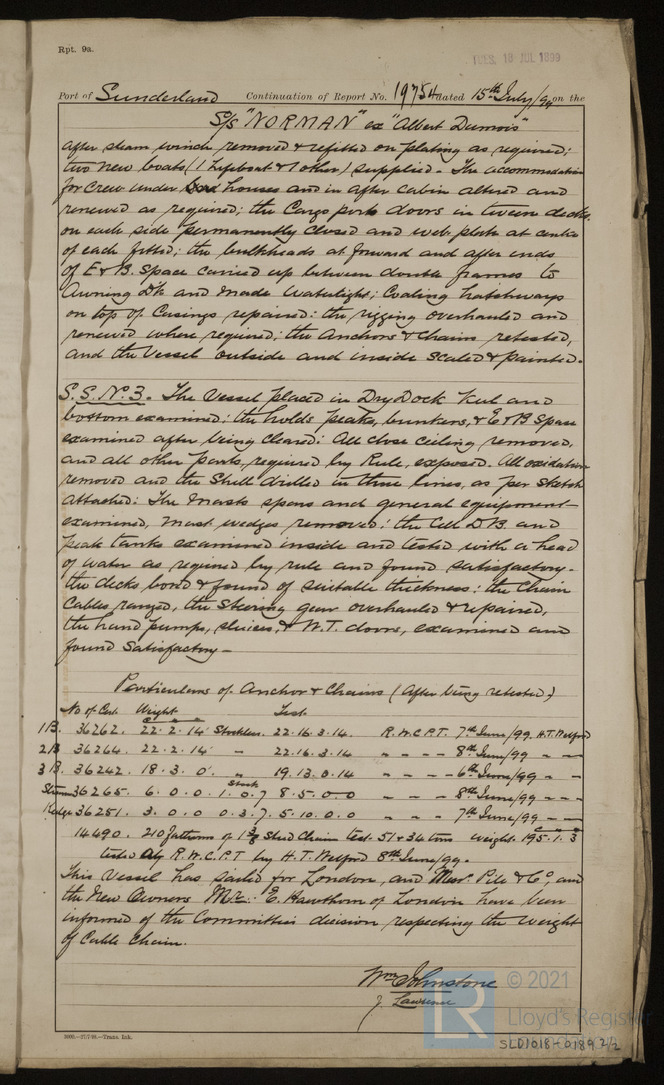 Rpt. 9a.
TUES. 18 JUL 1899
Port of Sunderland Continuation of Report No. 19754 dated 15th July/99 on the
S/S "NORMAN" ex "Albert Dumois"
after steam winch removed & refitted on plating as required;
two new boats (1 Lifeboat & 1 other) supplied. The accommodation
for Crew under houses and in after cabin altered and
renewed as required; the Cargo ports doors in tween decks
on each side permanently closed and web plate at centre
of each fitted; the bulkheads at forward and after ends
of E & B. Space carried up between double frames to
Awning Dk and made watertight; Coaling hatchways
on top of Casings repaired: the rigging overhauled and
renewed where required; the Anchors & Chains retested,
and the Vessel outside and inside scaled & painted.
S.S. No. 3. The Vessel placed in Dry Dock Keel and
bottom examined; the holds peaks, bunkers, & E & B Space
examined after being cleared: All close ceiling removed,
and all other parts, required by Rule, exposed. All oxidation
removed and the Shell drilled in three lines, as per sketch
attached. The Masts spars and general equipment
examined, mast wedges removed: the Cell D.B. and
peak tanks examined inside and tested with a head
of water as required by rule and found satisfactory.
the decks bored & found of suitable thickness: the Chain
Cables ranged, the Steering gear overhauled & repaired,
the hand pumps, sluices, & W.T. doors, examined and
found Satisfactory —
Particulars of Anchor & Chains (After being retested.)
No of Cert. Weight Test
1 B. 36262. 22.2.14 Stockless 22.16.3.14 R.W.C.P.T. 7th June/99. H.T. Welford
2 B 36264. 22.2.14 " 22.16.3.14 " " " " 8th June/99 " "
3 B. 36242. 18.3.0. " 19.13.0.14 " " " " 6th June/99 " "
Stock
Stream 36265. 6.0.0. 1.0.7 8.5.0.0 " " " 8th June/99 " " "
Kedge 36251. 3.0.0 0.3.7 5.10.0.0 " " " 7th June/99 " "
14490. 210 fathoms of 1 3/8 Stud Chain test. 51 & 34 tons weight. 195.1.3
tested at R.W.C.P.T by H.T. Welford 8th June/99.
This Vessel has sailed for London, and Messrs. Pile & Co, and
the New Owners E. Hawthorn of London have been
informed of the Committee's decision respecting the weight
of Cable Chain.
Wm Johnstone
J. Lawrence
© 2021
LR
Lloyd's Register
SLD1018-0189 2/2